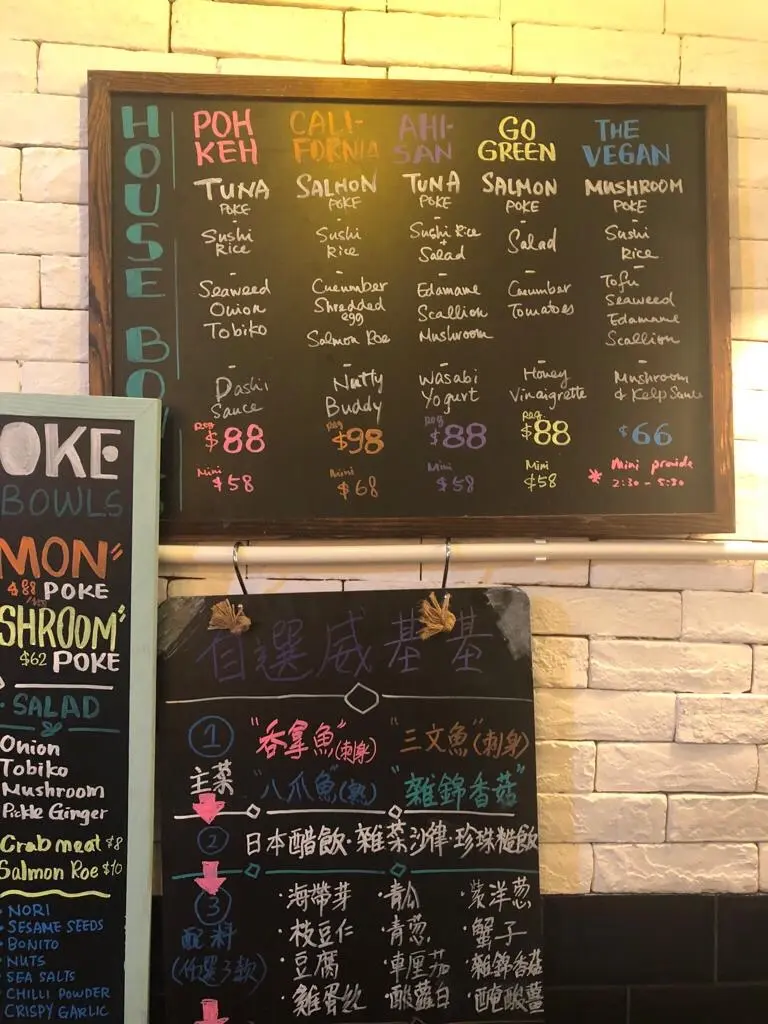 HOUSE BO
POH KEH
TUNA
POKE
-
Sushi
Rice
-
Seaweed
Onion
Tobiko
-
Dashi
Sauce
Reg $88
Mini $58
CALI-
FORNIA
SALMON
POKE
-
Sushi
Rice
-
Cucumber
Shredded
egg
Salmon Roe
-
Nutty
Buddy
Reg $98
Mini $68
AHI-
SAN
TUNA
POKE
-
Sushi Rice
+
Salad
-
Edamame
Scallion
Mushroom
-
Wasabi
Yogurt
Reg $88
Mini $58
GO
GREEN
SALMON
POKE
-
Salad
-
Cucumber
Tomatoes
-
Honey
Vinaigrette
Reg. $88
Mini $58
THE
VEGAN
MUSHROOM
POKE
-
Sushi
Rice
-
Tofu
Seaweed
Edamame
Scallion
-
Mushroom
& Kelp Sauce
$66
* Mini provide
2:30 - 5:30
OKE
BOWLS
MON"
$88 POKE
SHROOM"
$62 POKE
SALAD
Onion
Tobiko
Mushroom
Pickle Ginger
Crab meat $8
Salmon Roe $10
· NORI
· SESAME SEEDS
· BONITO
· NUTS
· SEA SALTS
· CHILLI POWDER
CRISPY GARLIC
自選威基基
1 "吞拿魚"(刺身) "三文魚"(刺身)
主菜 "八爪魚"(熟) "雜錦香菇"
2 日本醋飯·雜菜沙律·珍珠糙飯
3 ·海帶芽 ·青瓜 ·紫洋葱
配料 ·枝豆仁 ·青葱 ·蟹子
(任選3款) ·豆腐 ·車厘茄 ·雜錦香菇
·雞蛋絲 ·酸蘿白 ·醃酸薑